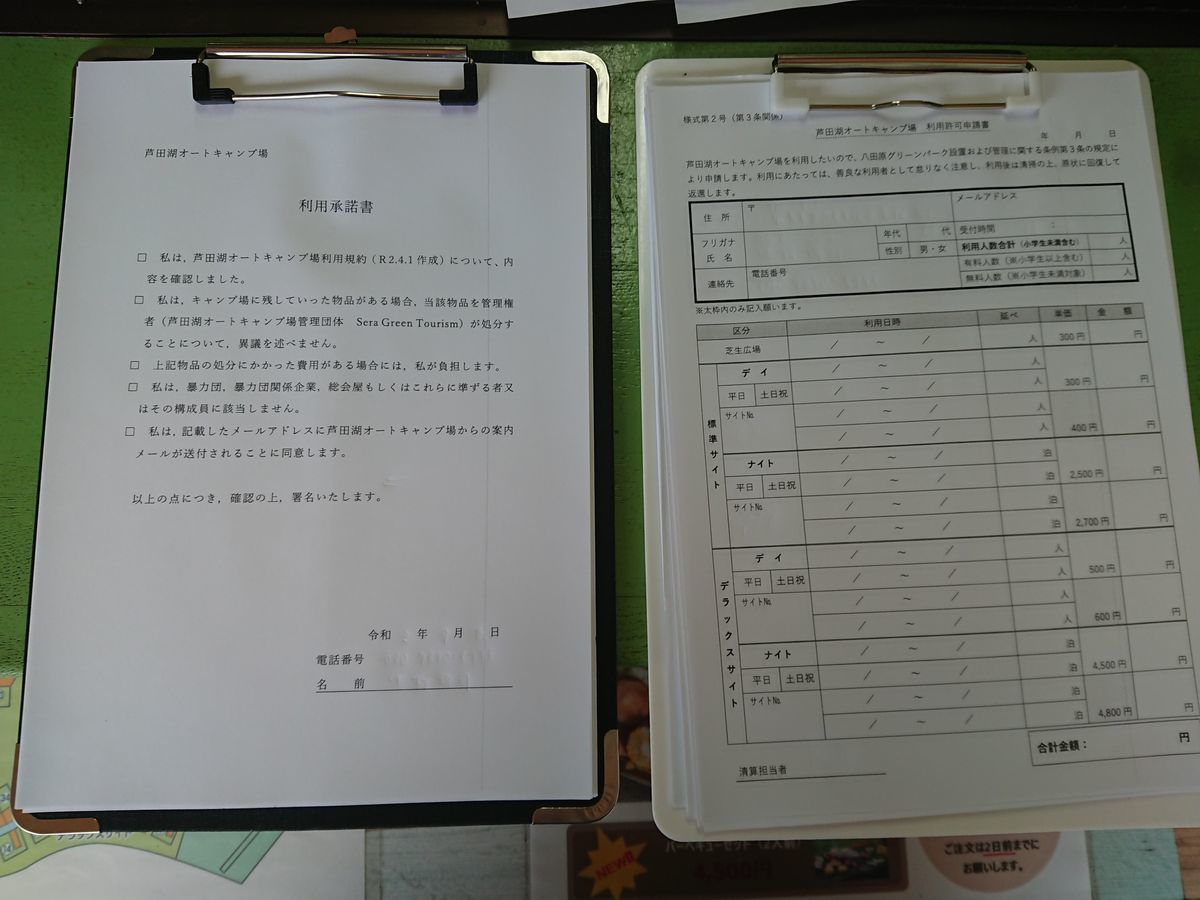 芦田湖オートキャンプ場
利用承諾書
□　私は，芦田湖オートキャンプ場利用規約（R2.4.1作成）について、内
容を確認しました。
□　私は，キャンプ場に残していった物品がある場合，当該物品を管理権
者（芦田湖オートキャンプ場管理団体　Sera Green Tourism）が処分す
ることについて，異議を述べません。
□　上記物品の処分にかかった費用がある場合には，私が負担します。
□　私は，暴力団，暴力団関係企業，総会屋もしくはこれらに準ずる者又
はその構成員に該当しません。
□　私は，記載したメールアドレスに芦田湖オートキャンプ場からの案内
メールが送付されることに同意します。
以上の点につき，確認の上，署名いたします。
令和　年　月　日
電話番号
名　前
様式第２号（第３条関係）
芦田湖オートキャンプ場　利用許可申請書
年　月　日
芦田湖オートキャンプ場を利用したいので、八田原グリーンパーク設置および管理に関する条例第３条の規定に
より申請します。利用にあたっては、善良な利用者として怠りなく注意し、利用後は清掃の上、原状に回復して
返還します。
住　所　〒　メールアドレス
フリガナ　年代　代　受付時間　：
氏　名　性別　男・女　利用人数合計（小学生未満含む）　人
有料人数（※小学生以上含む）　人
連絡先　電話番号　無料人数（※小学生未満対象）　人
※太枠内のみ記入願います。
区分　利用日時　延べ　単価　金　額
芝生広場　／　～　／　人　300円　円
標準サイト
デ イ　／　～　／　人
平日　土日祝　／　～　／　人　300円　円
サイト№　／　～　／　人
／　～　／　人　400円　円
ナイト　／　～　／　泊
平日　土日祝　／　～　／　泊　2,500円　円
サイト№　／　～　／　泊
／　～　／　泊　2,700円　円
デラックスサイト
デ イ　／　～　／　人
平日　土日祝　／　～　／　人　500円　円
サイト№　／　～　／　人
／　～　／　人　600円　円
ナイト　／　～　／　泊
平日　土日祝　／　～　／　泊　4,500円　円
サイト№　／　～　／　泊
／　～　／　泊　4,800円　円
合計金額：　円
清算担当者
デラックスサイト
NEW!!
バーベキューセット（2人前）
4,500円
ご注文は2日前までに
お願いします。